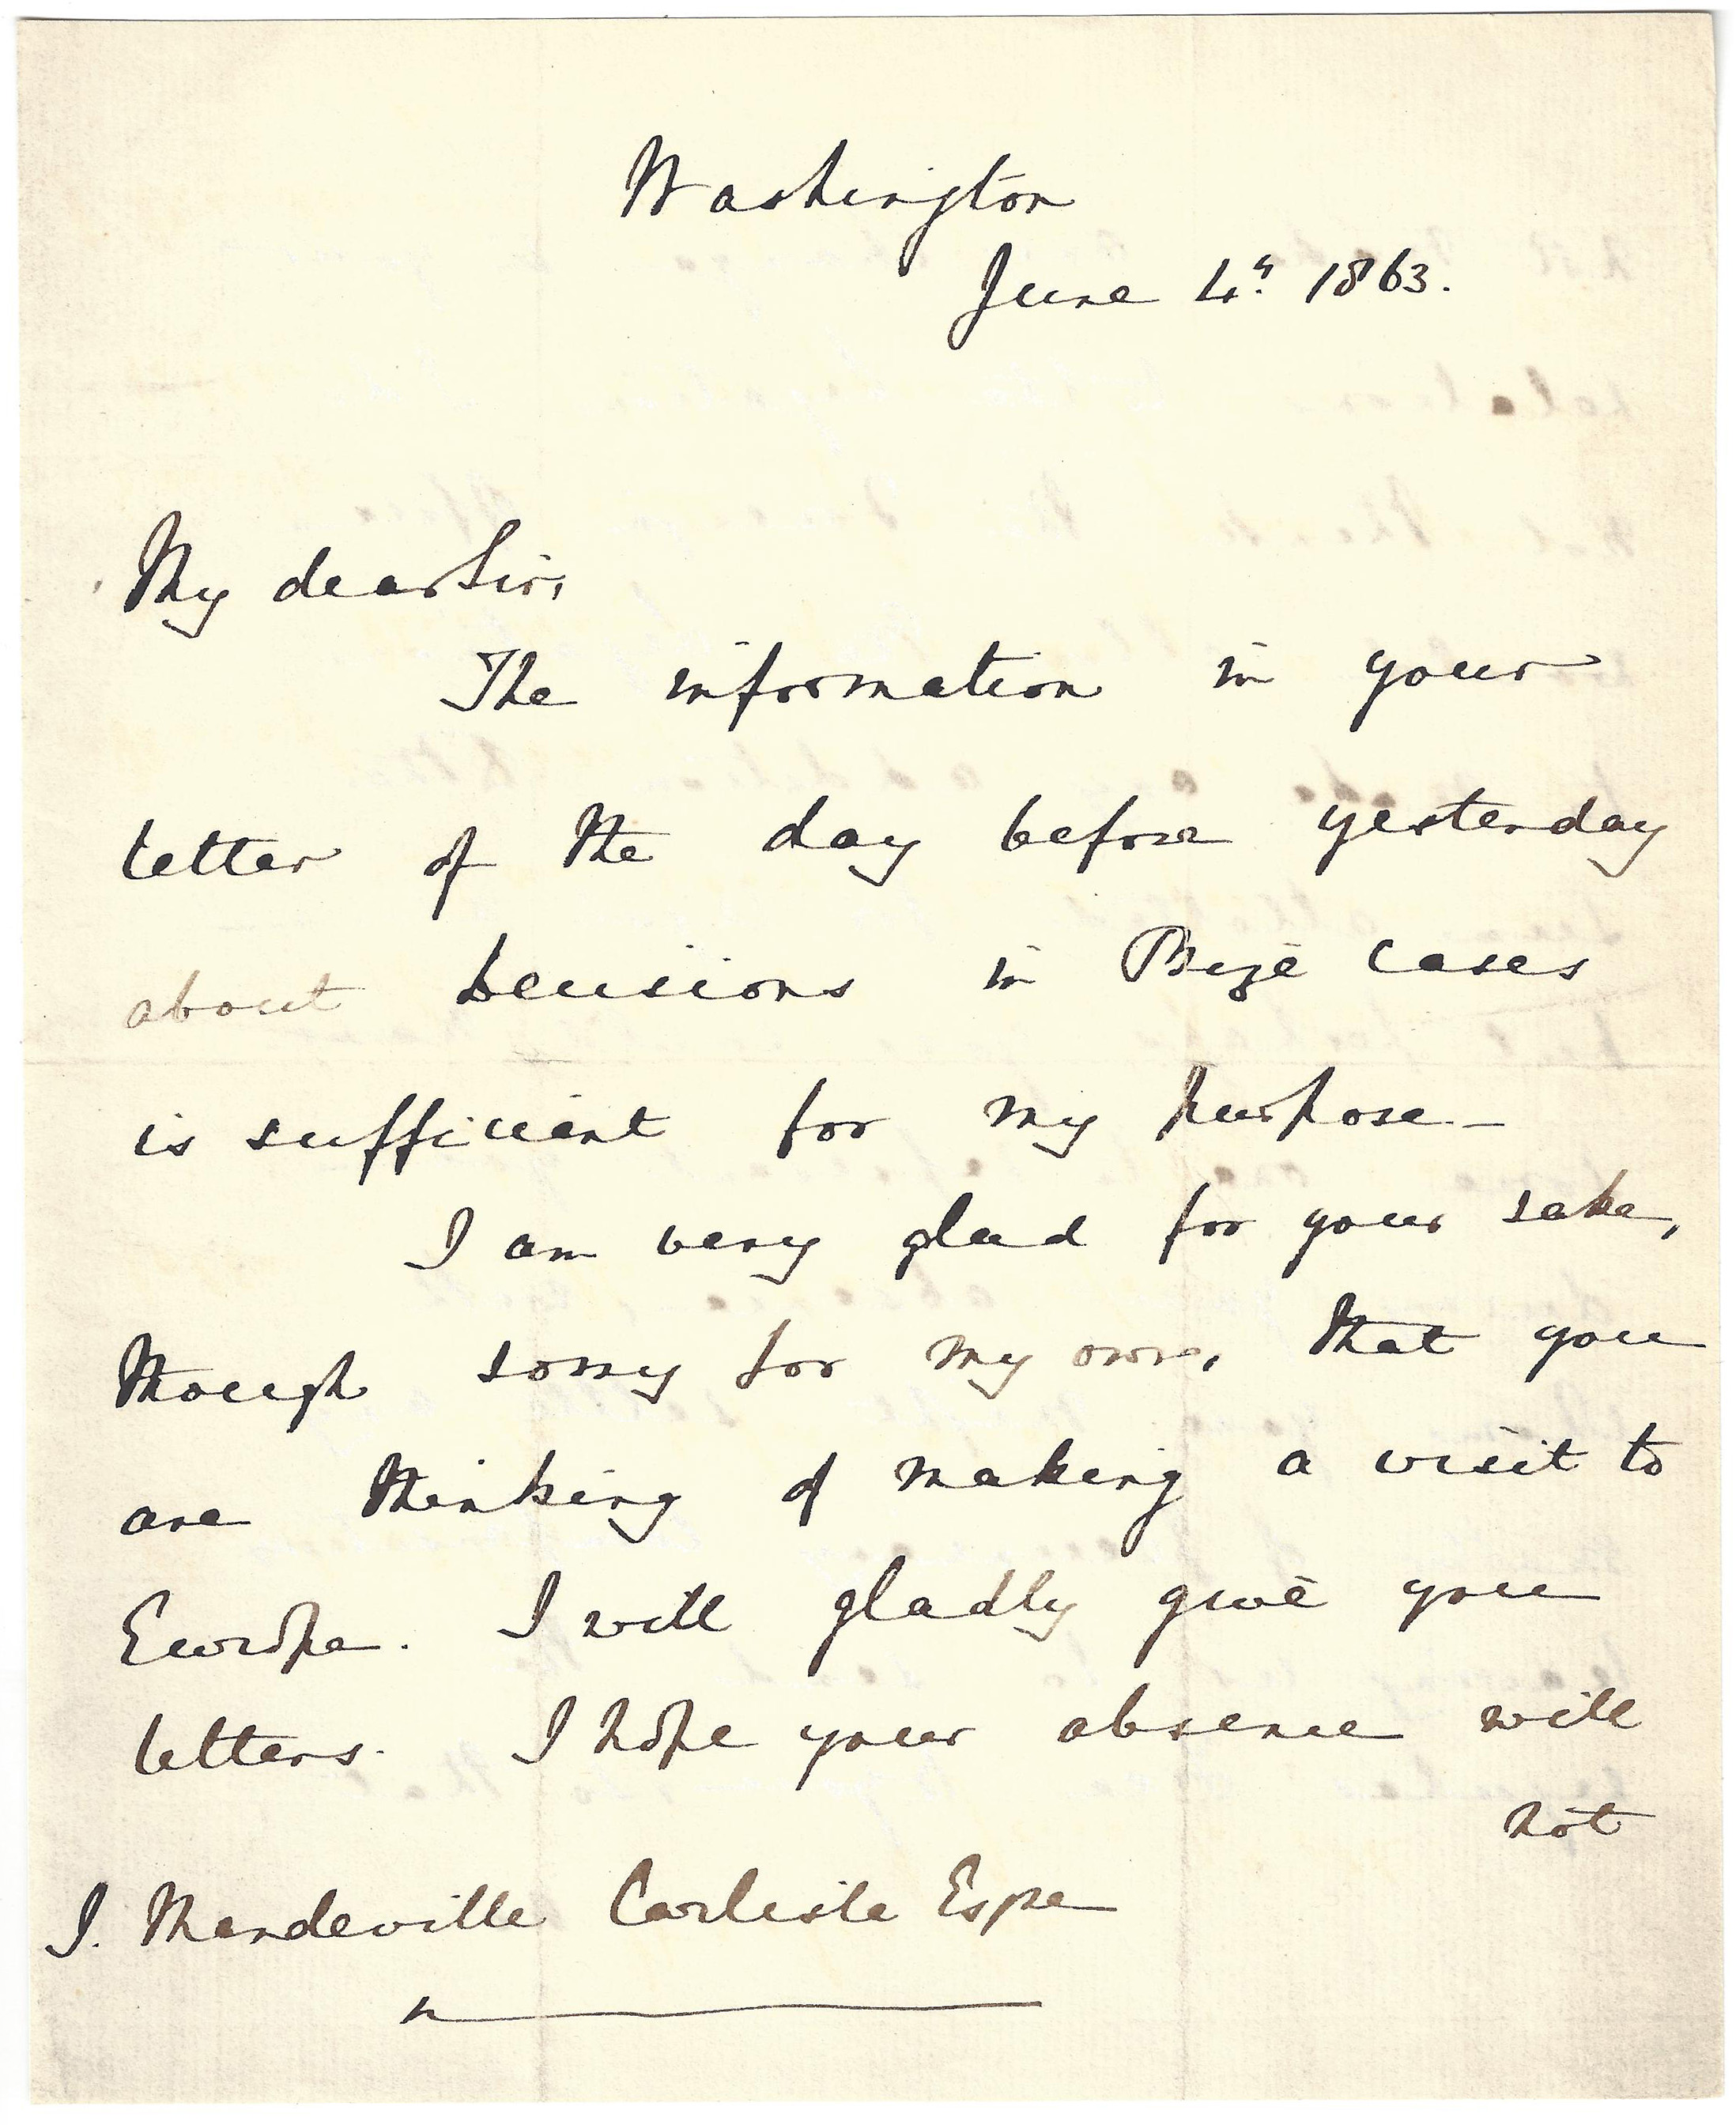 Washington
June 4th 1863.
My dear Sir,
The information in your
letter of the day before yesterday
about Decisions in Prize Cases
is sufficient for my purpose—
I am very glad for your sake,
though sorry for my own, that you
are thinking of making a visit to
Europe. I will gladly give you
letters. I hope your absence will
not
J. Mandeville Carlisle Esqre